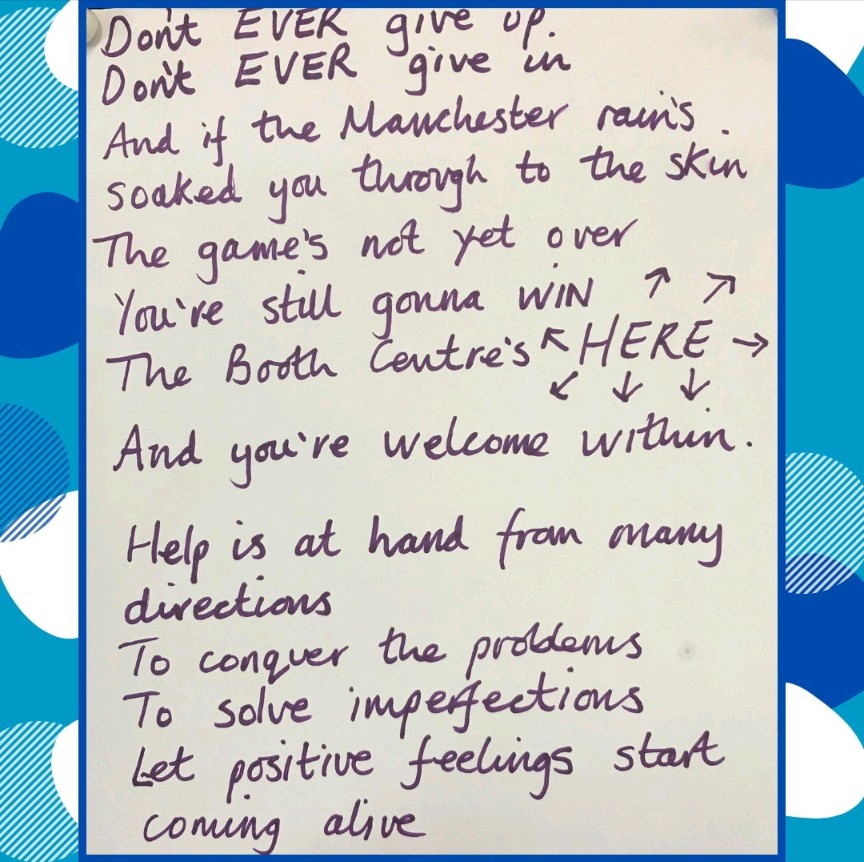 Don't EVER give up.
Don't EVER give in
And if the Manchester rain's.
soaked you through to the skin
The game's not yet over
You're still gonna WIN ↗ ↗
The Booth Centre's ↖ HERE →
↙ ↓ ↓
And you're welcome within.
Help is at hand from many
directions
To conquer the problems
To solve imperfections
Let positive feelings start
coming alive